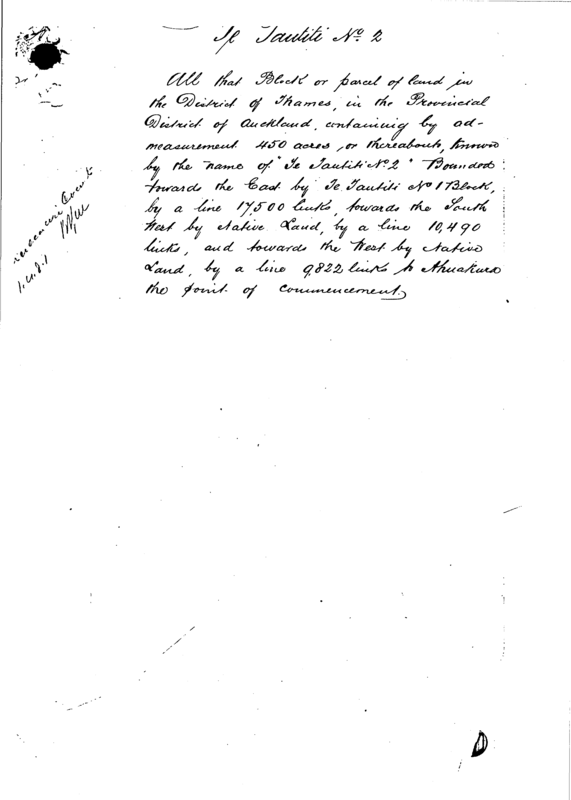 Te Tautiti No 2
All that Block or parcel of land in
the District of Thames, in the Provincial
District of Auckland, containing by ad-
measurement 450 acres, or thereabouts, known
by the name of "Te Tautiti No 2" Bounded
towards the East by Te Tautiti No 1 Block,
by a line 17,500 links, towards the South
West by Native Land, by a line 10,490
links, and towards the West by Native
Land, by a line 9,822 links to Ahuakura
the point of commencement